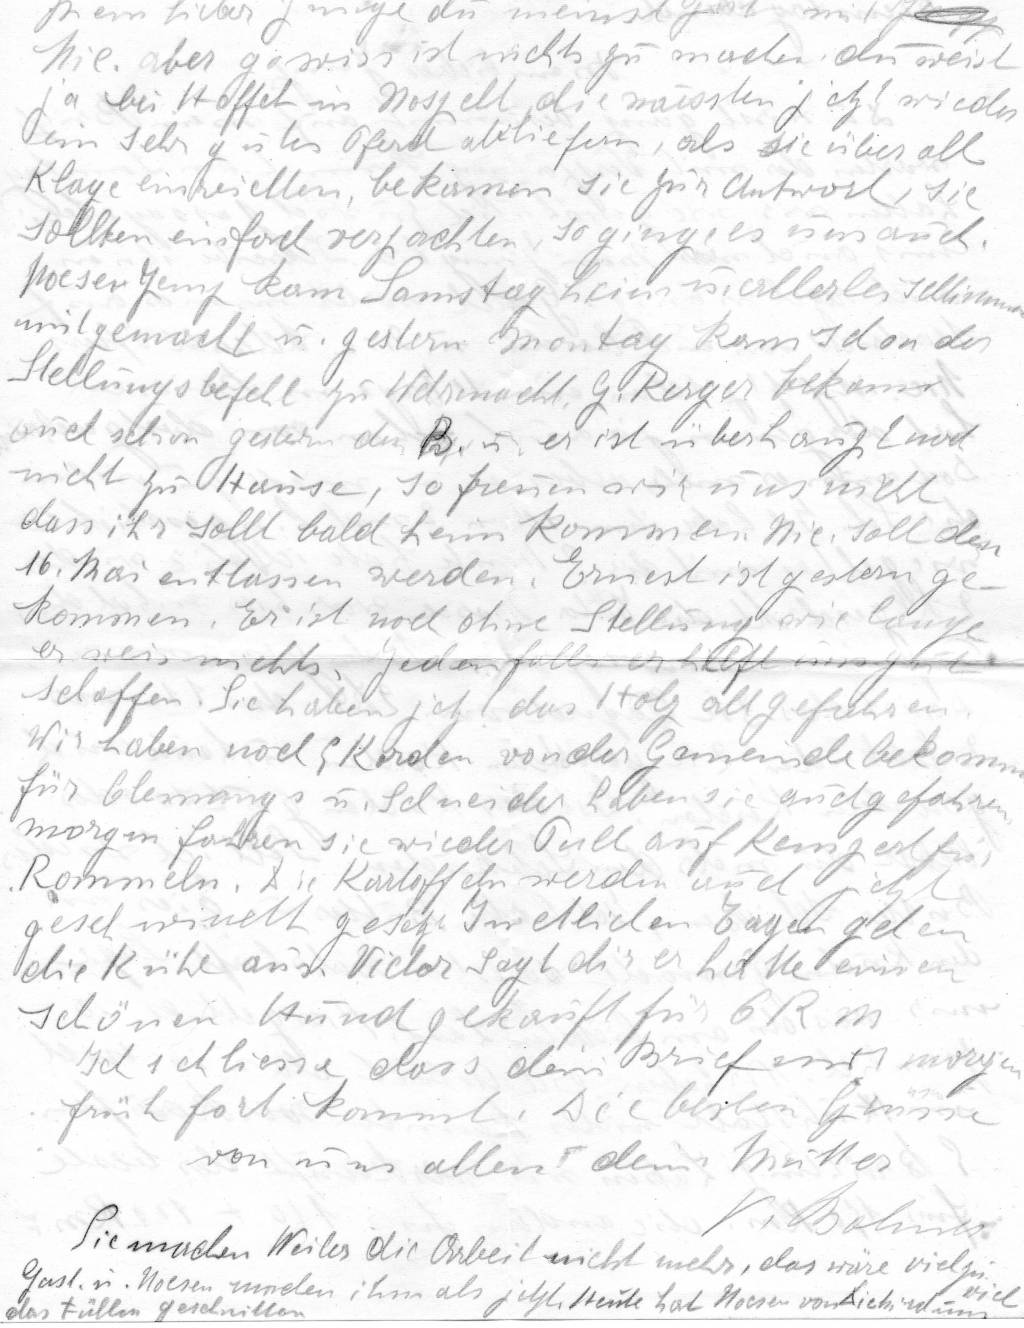 Mein lieber Junge du meinst Gest mit
Nic. aber gewiss ist nichts zu machen. du weist
ja bei Hoffelt in Nospelt, die mussten jetzt wieder
ein sehr gutes Pferd abliefern, als sie überall
Klage einreichten, bekamen sie zur Antwort, sie
sollten ein Pferd verpachten, so ginge es uns auch.
Noesen Jemp kam Samstag heim u. allerlei
mitgemacht u. gestern Montag kam schon der
Stellungsbefehl zu Wehrmacht. G. Rerger bekam
auch schon gestern den B. u. er ist überhaupt noch
nicht zu Hause, so freuen wir uns nicht
dass ihr sollt bald heim kommen. Nic. soll den
16. Mai entlassen werden. Ernest ist gestern ge-
kommen. Er ist noch ohne Stellung wie lange
er weis nichts, jedenfalls er hilft uns gut
schaffen. Sie haben jetzt das Holz all gefahren.
Wir haben noch 5 Korden von der Gemeinde bekommen
für Clemangs u. Schneider haben sie auch gefahren,
morgen fahren sie wieder auf für
Rommeln. Die Kartoffeln werden auch jetzt
geschwinelt gesetzt In etlichen Tagen gehen
die Kühe aus. Victor sagt dir er hätte einen
schönen Hund gekauft für 6 R M
Ich schliesse dass dein Brief mit morgen
früh fort kommt. Die besten Grüsse
von uns allen deine Mutter
V. Bohmer
Sie machen Weiler die Arbeit nicht mehr, das wäre viel zu viel
Gust. u. Noesen machen ihm als jetzt. Heute hat Noesen von uns
das Füllen geschnitten